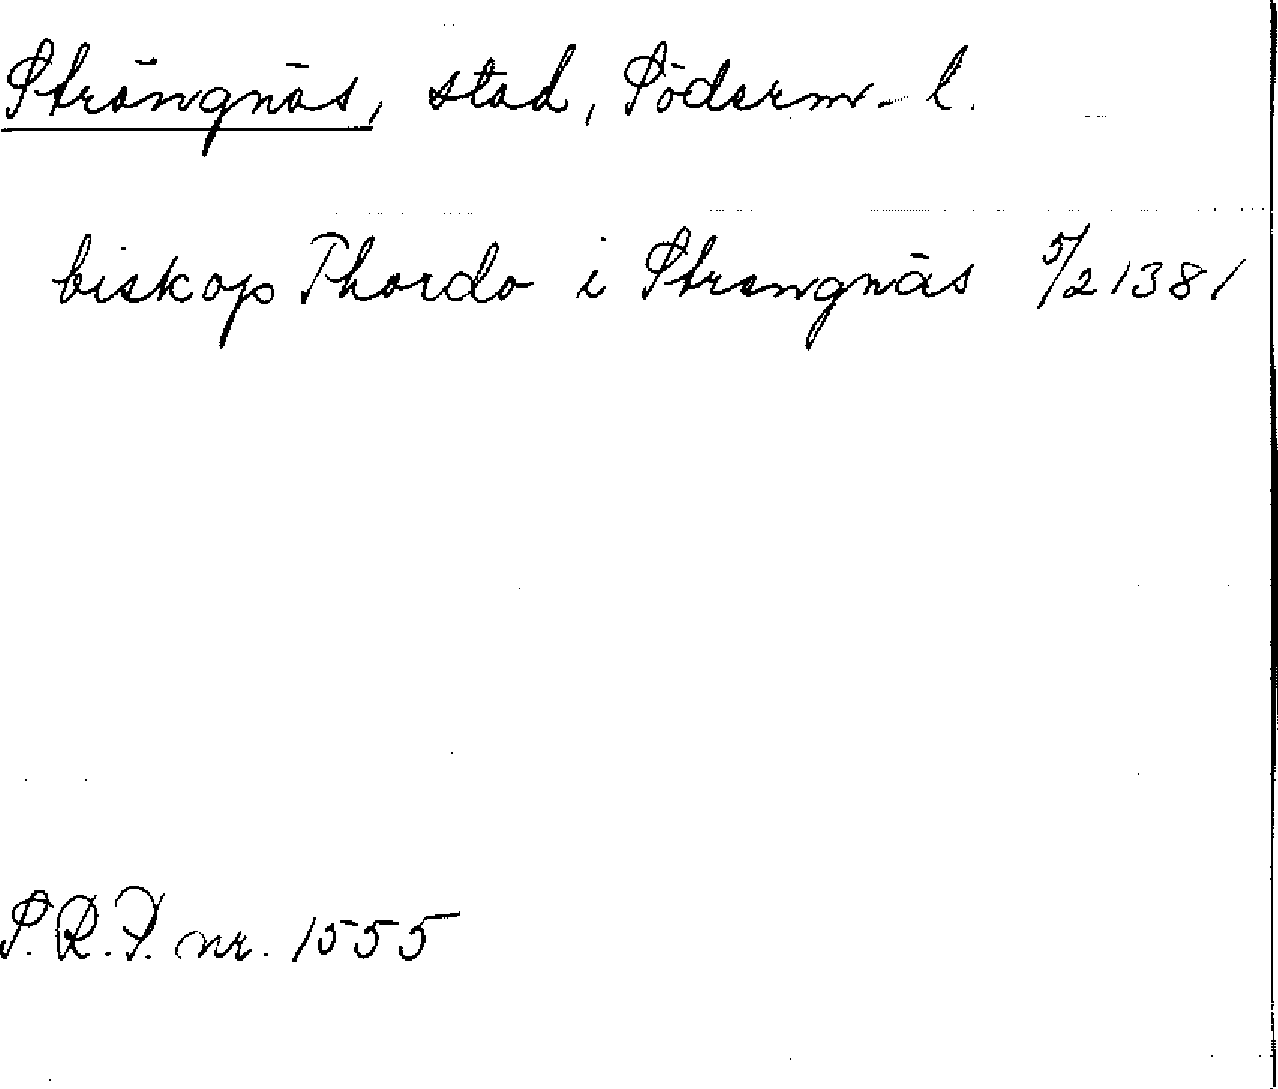 Strängnäs, stad, Söderm. l.
biskop Thordo i Strengnäs 5/2 1381
S.R.P. nr. 1555